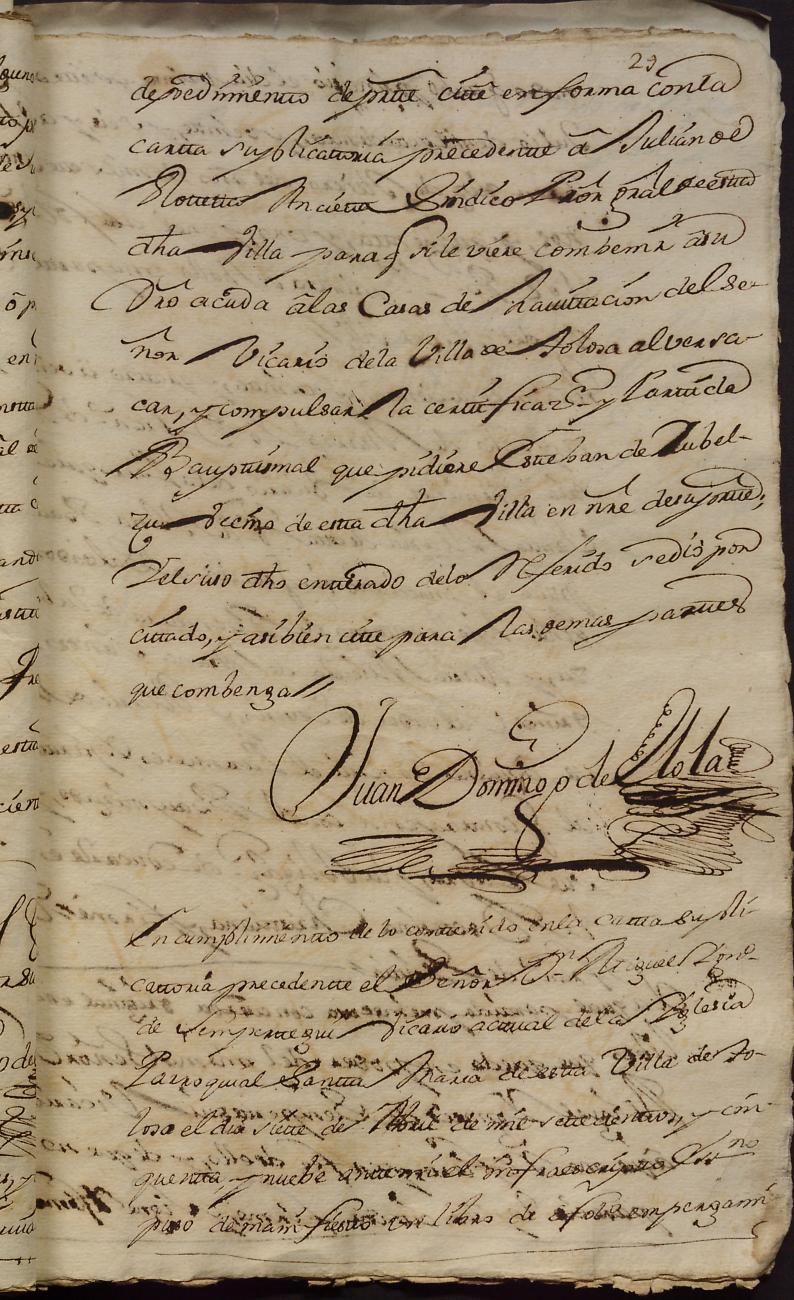 29
de pedimiento de parte cite en forma con la
cartta suplicattoria precedentte â Julian de
Ancieta Sindico Pror gral de estta
dha Villa para q si le viere combenir a su
Dro acuda â las Casas de havittacion del Se-
ñor Vicario de la Villa de Tolosa al ver sa-
car, y compulsar la certtificazon y Parttida
Bapttismal que pidiere Estteban de Zubel-
zu Vecino de estta dha Villa en nre de su partte,
el suso dho entterado de lo Referido se dio por
cittado, y asi bien citte para las demas parttes
que combenga //
Juan Domingo de
En cumplimientto de lo conttenido en la cartta supli-
cattoria precedentte el Señor Dn Miguel
de Sempertegui Vicario acttual de la Yglesia
Parroquial Santta Maria de estta Villa de To-
losa el dia siette de de mil settecienttos, y cin-
quentta y nuebe antte mi el Essno
puso de manifiestto un libro de a folio empergami